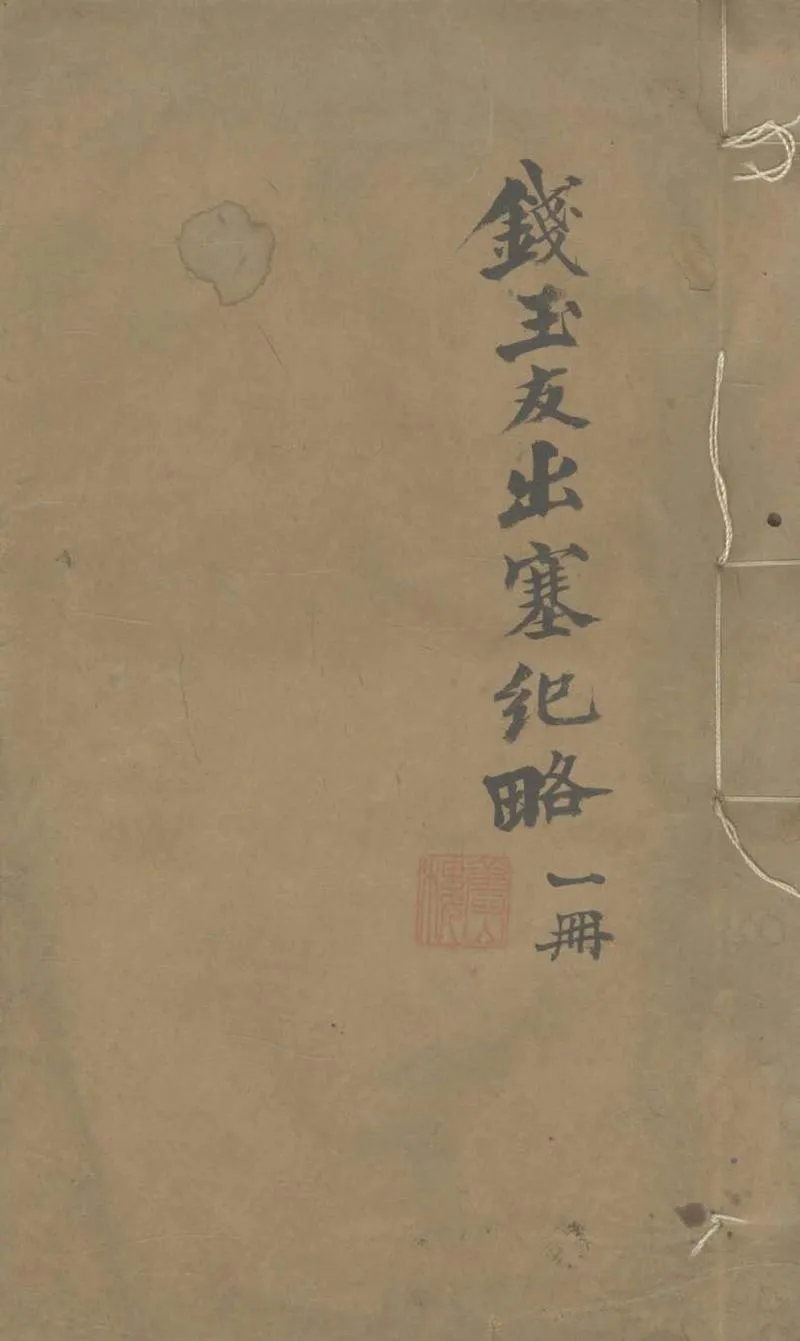 錢玉友出塞紀略
一冊